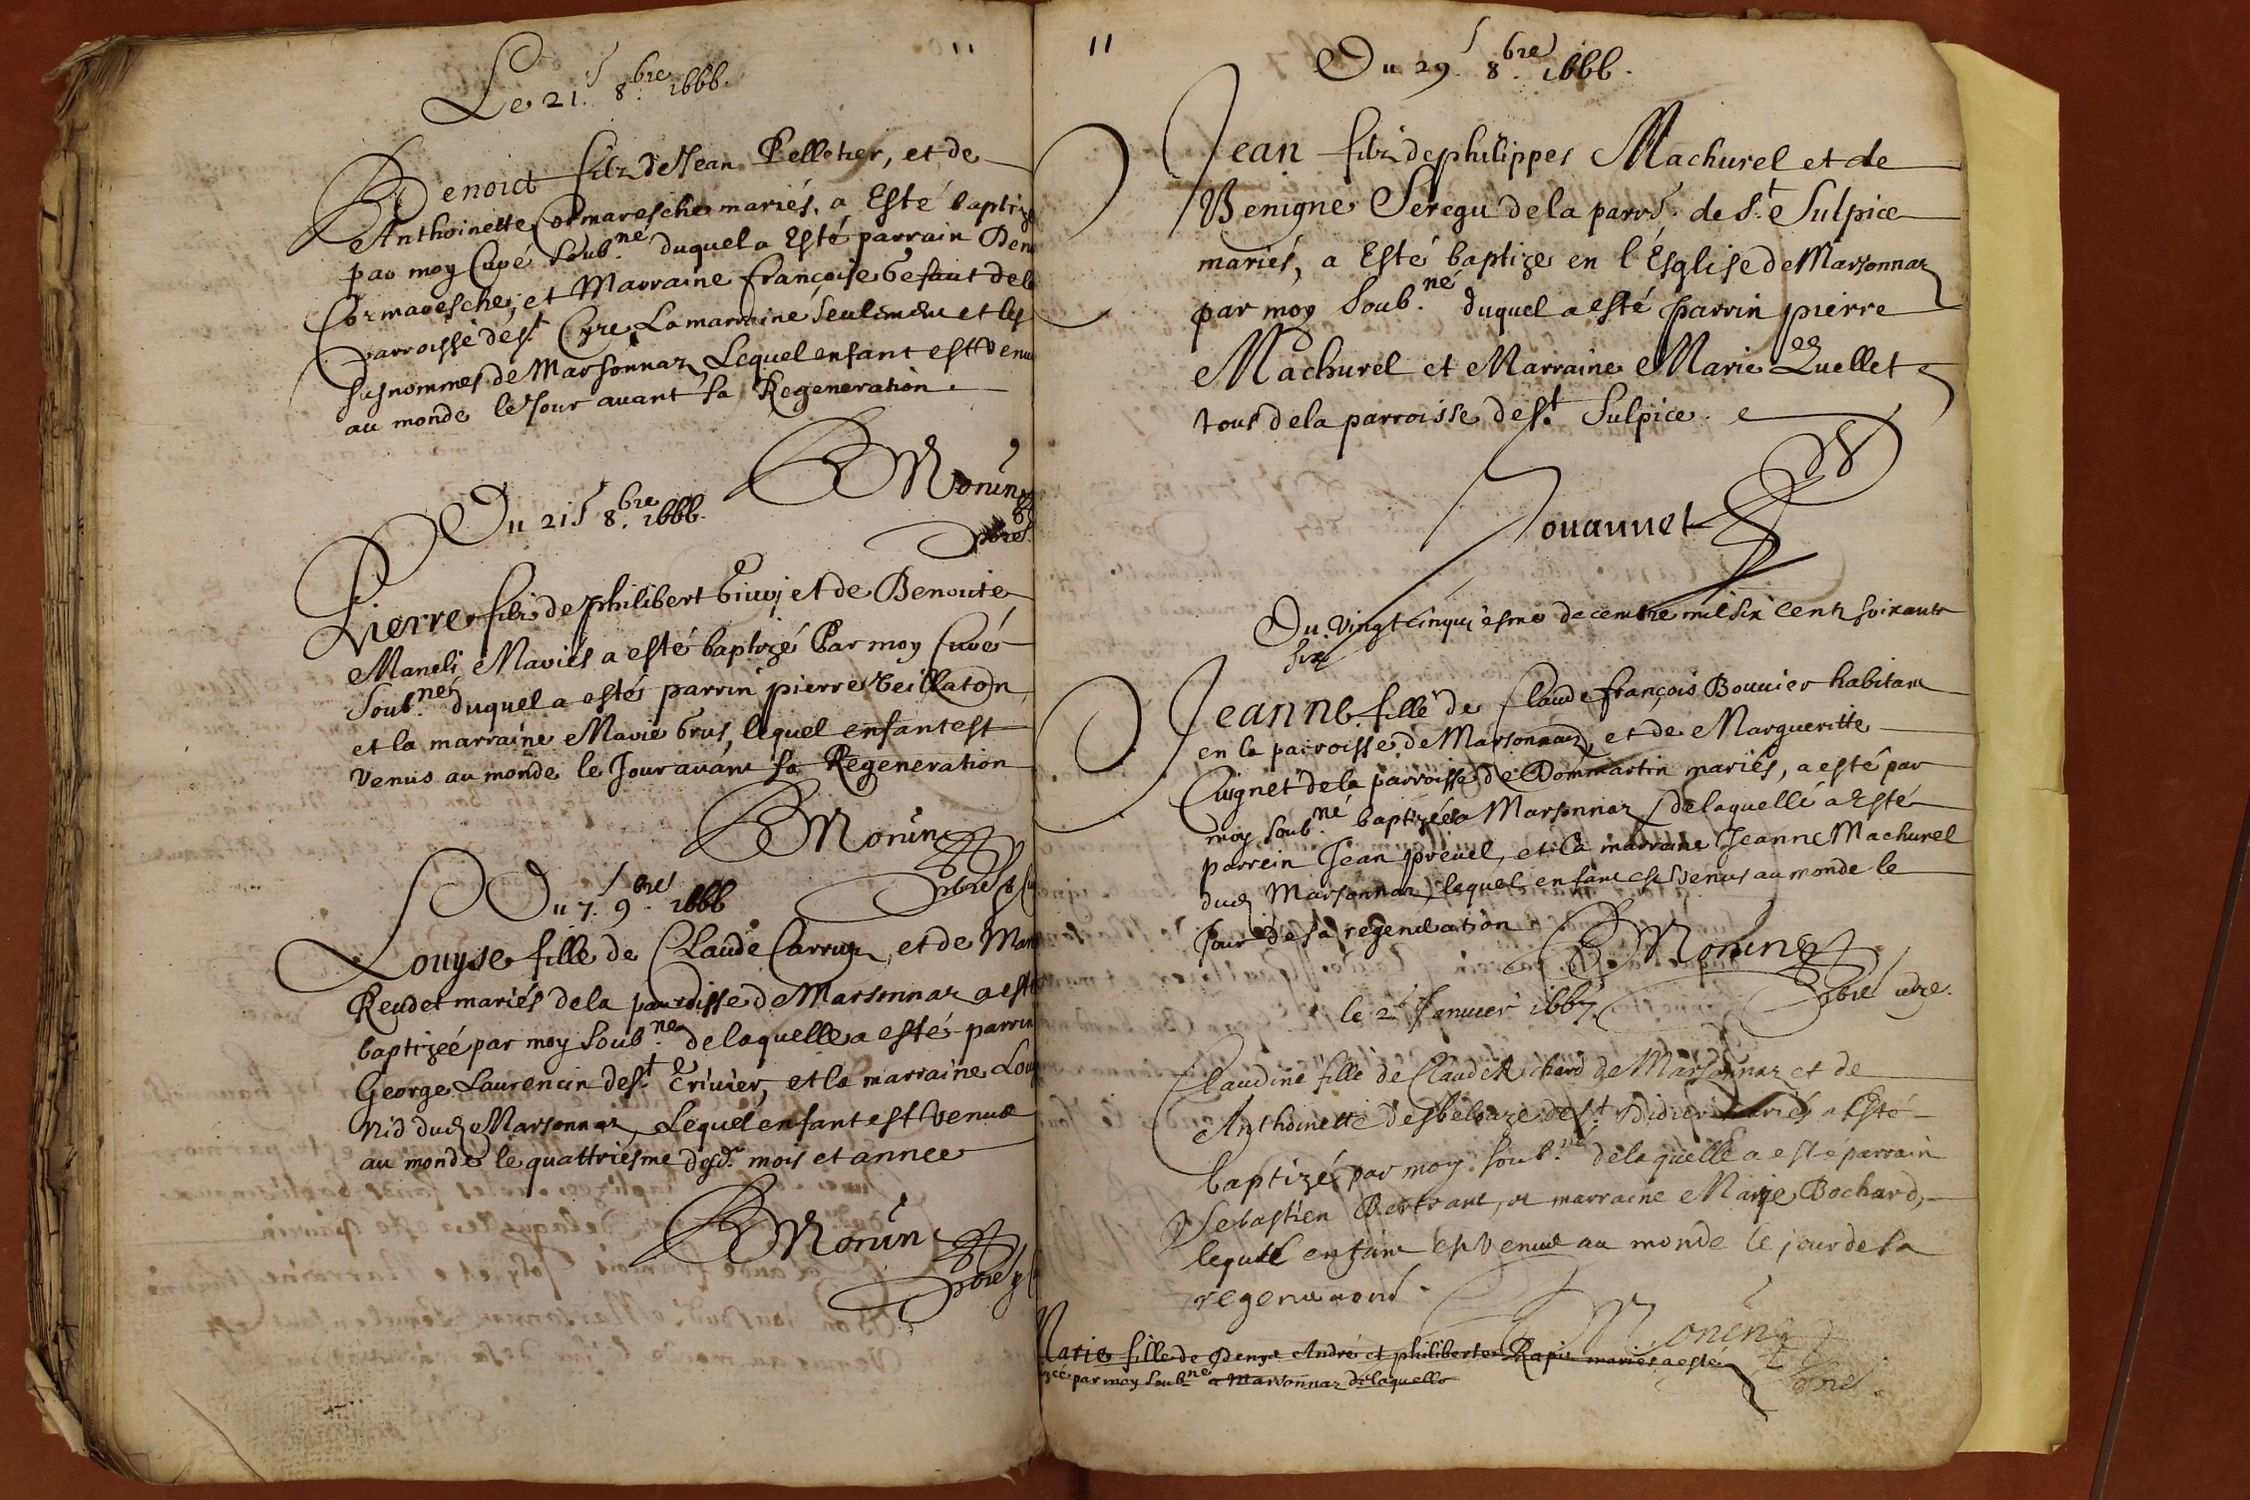 Le 21.s 8.bre 1666.
Benoict filz de Jean Pelletier, et de
Anthoinette Cormaresche mariés, a Esté baptizé
par moy Curé soub.né duquel a Esté parrain Beno
Cormaresche, et Marraine françoise befaut de la
parroisse de s.t Cyre La marraine seulement et les
susnommes de Marsonnaz, Lequel enfant est venu
au monde le Jour auant sa Regeneration.
BMonin
pbre
Du 21s 8.bre 1666.
Pierre filz de philibert et de Benoiste
Maneli Mariés a esté baptizé Par moy Curé
soub.né duquel a estés parrin pierre Veillaton
et la marraine Marie brus, lequel enfant est
venus au monde le Jour auant sa Regeneration
BMonin
pbre
Du 7.s 9.bre 1666
Louyse fille de Claude Carruz, et de Mar
Reudet mariés de la parroisse de Marsonnaz a esté
baptizeé par moy soub.né de laquelle a esté parrin
George Laurencin de s.t Triuier, et la marraine Lou
nid dud. Marsonnaz, Lequel enfant est venue
au monde le quattriesme desd. mois et annee
BMonin
pbre
11
Du 29.s 8.bre 1666.
Jean filz de philippes Machurel et de
Benigne Seregu de la parrs. de s.te Sulpice
mariés, a Esté baptize en l'Esglise de Marsonnaz
par moy soub.né duquel a esté parrin pierre
Machurel et Marraine Marie Quellet
tous de la parroisse de s.t Sulpice.
Jouannet
Du vingtcinquiesme decembre mil six centz soixante
six
Jeanne fille de Claude françois Bouuier habitant
en la parroisse de Marsonnaz, et de Margueritte
Cuignet de la parroisse de Dommartin mariés, a esté par
moy soub.né baptizéé a Marsonnaz de laquelle a Esté
parrein Jean preuel, et la marraine Jeanne Machurel
dud. Marsonnaz, lequel enfant est venus au monde le
Jour de sa regeneration
BMonin
pbre
le 2.e Januier 1667.
Claudine fille de Claude Richard de Marsonnaz et de
Anthoinette desbelouze de s.t Didier mariés a Esté
baptizé par moy soub.né de laquelle a esté parrain
Sebastien Bertrant, et marraine Marie Bochard,
lequel enfant est venue au monde le jour de sa
regeneration.
Monin
pbre.
Marie fille de Denys André et philiberte Rapir mariés a esté
par moy soub.né a Marsonnaz de laquelle